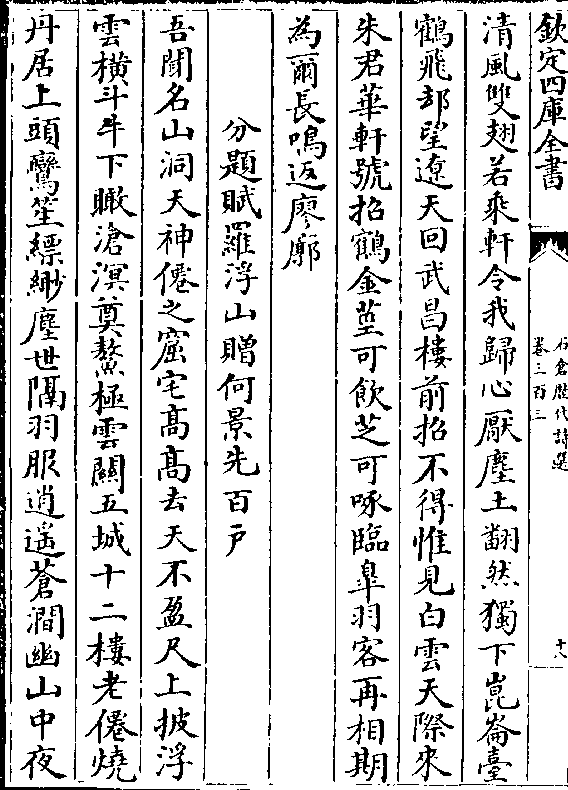 欽定四庫全書
石倉歷代詩選
卷三百三
十八
清風雙翅若乘軒令我歸心厭塵土翻然獨下崑崙臺
鶴飛却望遼天回武昌樓前招不得惟見白雲天際來
朱君華軒號招鶴金莖可飲芝可啄臨臯羽客再相期
為爾長鳴返廖廓
分題賦羅浮山贈何景先百戶
吾聞名山洞天神僊之窟宅高高去天不盈尺上披浮
雲橫斗牛下瞰滄溟奠鰲極雲關五城十二樓老僊燒
丹居上頭鸞笙縹緲塵世隔羽服逍遥蒼澗幽山中夜